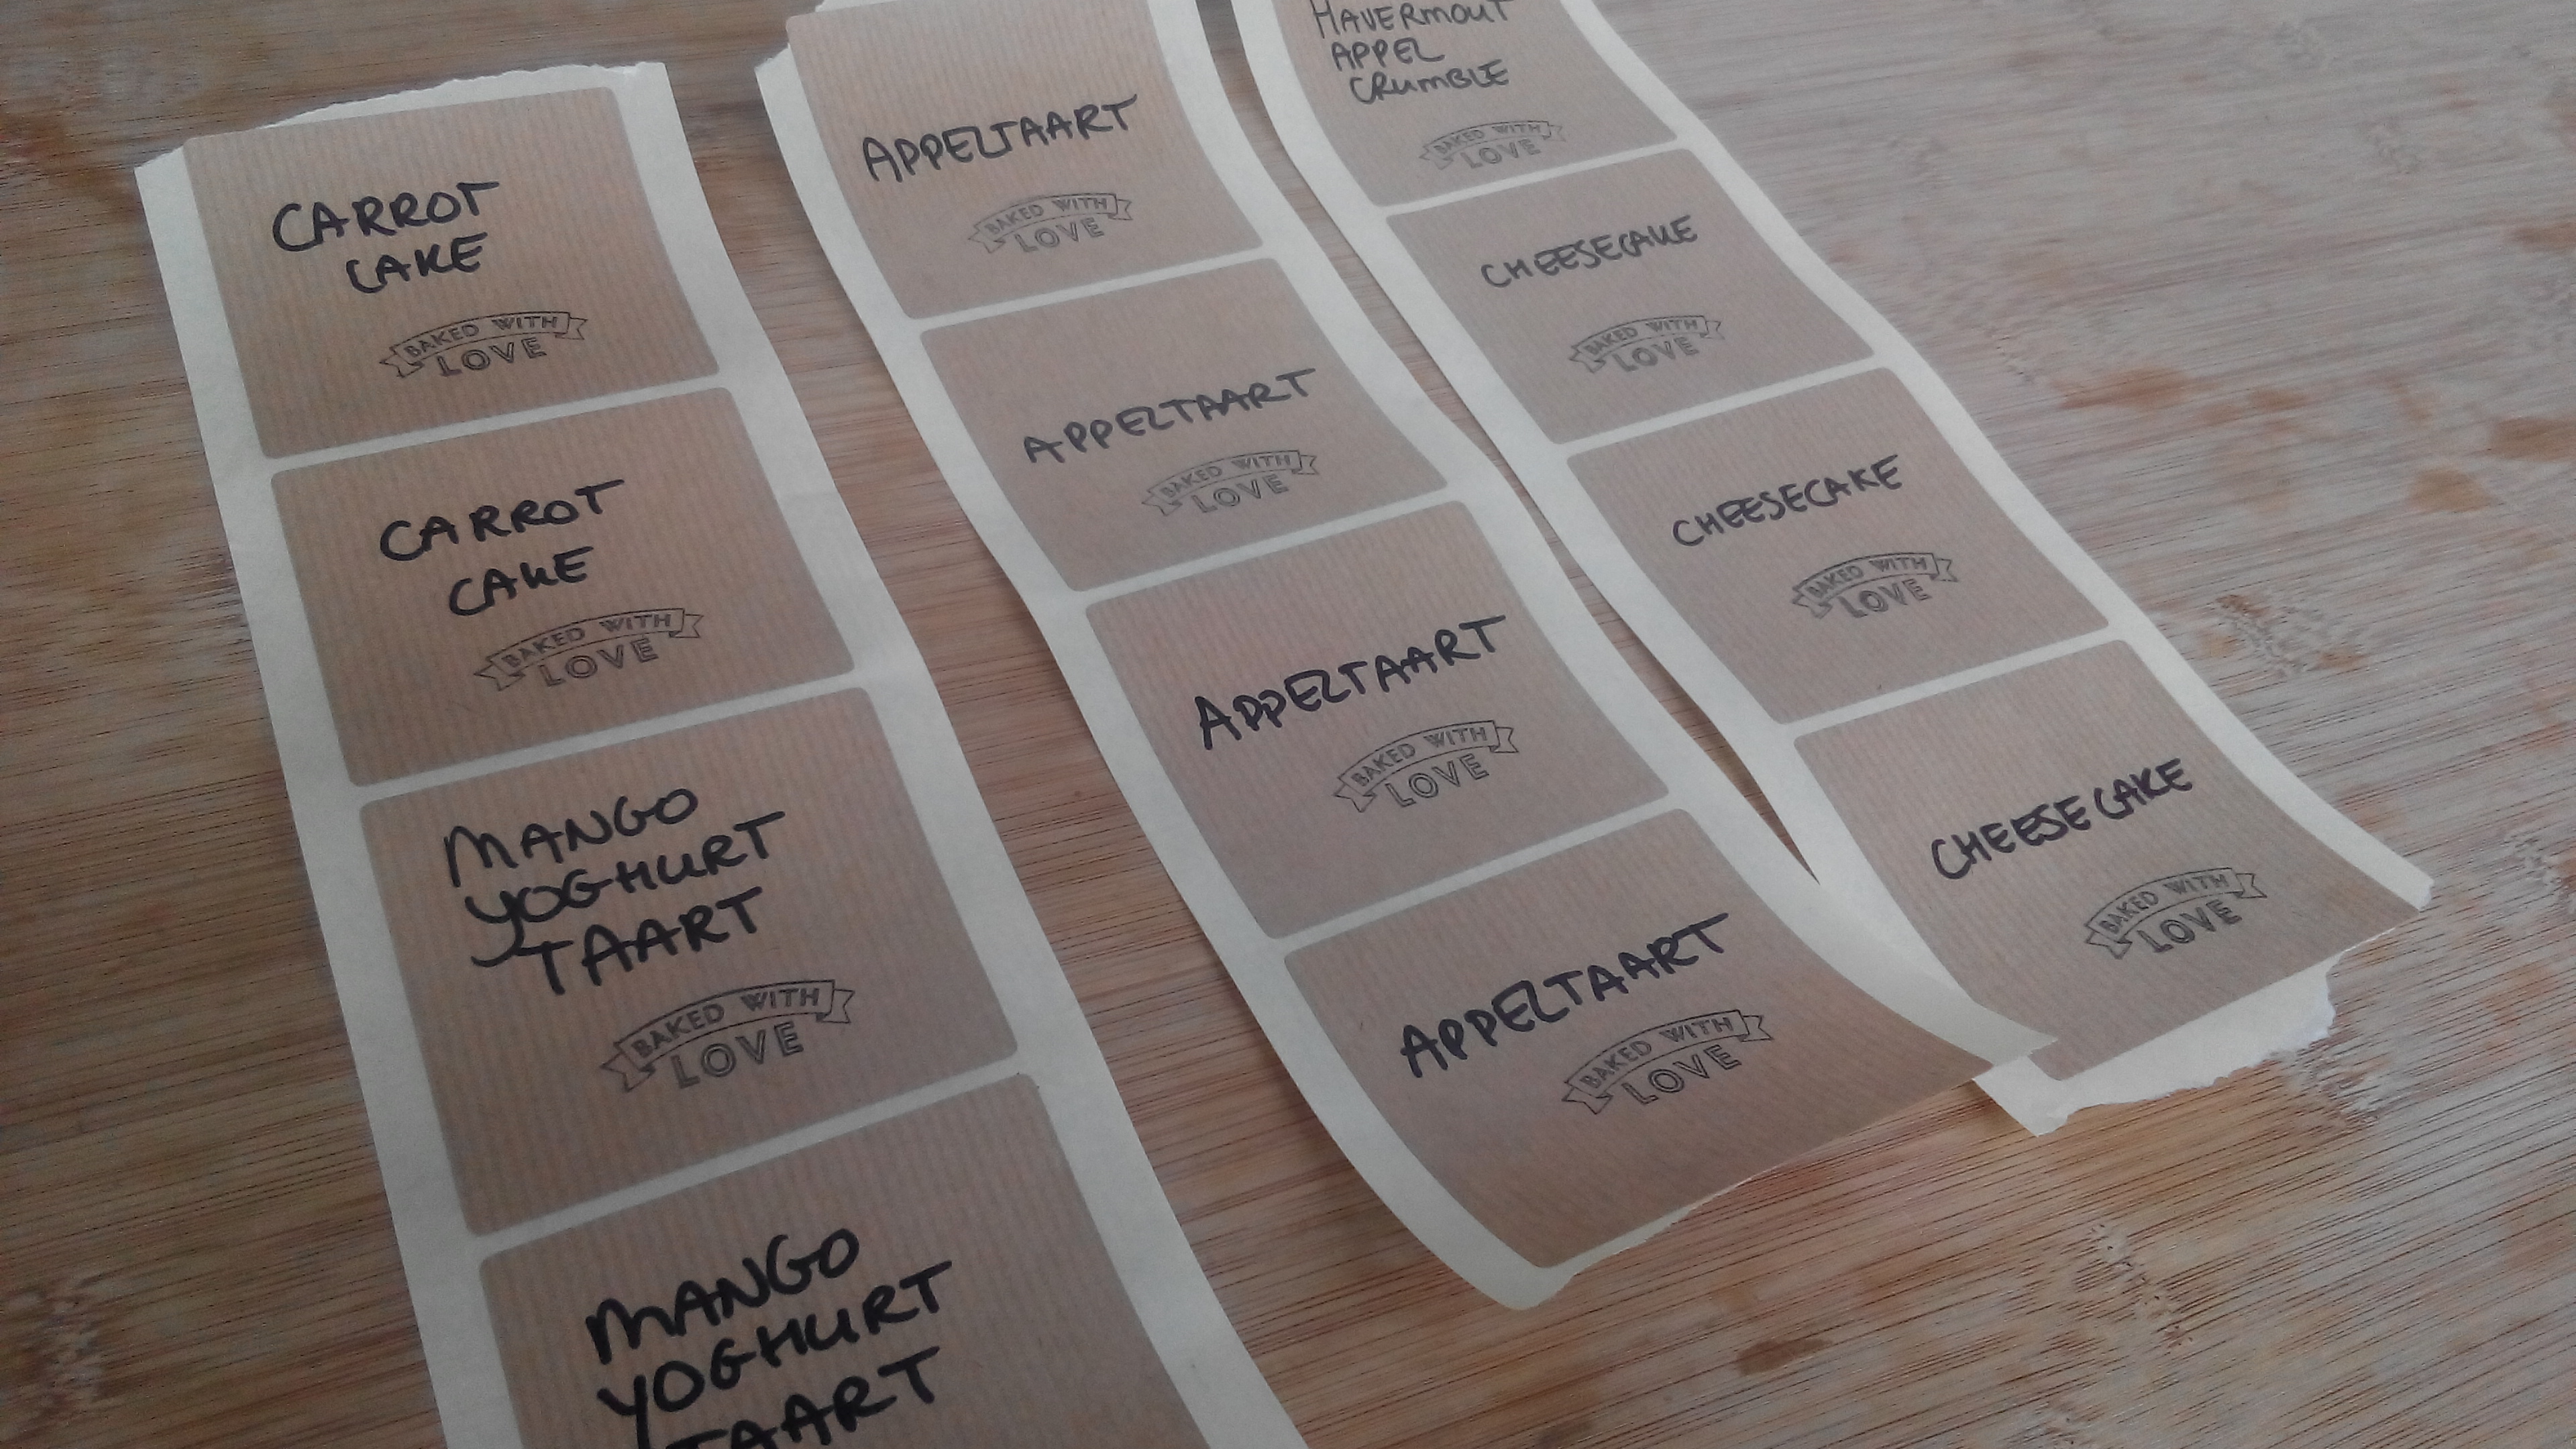 CARROT
CAKE
BAKED WITH
LOVE
CARROT
CAKE
BAKED WITH
LOVE
MANGO
YOGHURT
TAART
BAKED WITH
LOVE
MANGO
YOGHURT
TAART
APPELTAART
BAKED WITH
LOVE
APPELTAART
BAKED WITH
LOVE
APPELTAART
BAKED WITH
LOVE
APPELTAART
BAKED WITH
LOVE
HAVERMOUT
APPEL
CRUMBLE
BAKED WITH
LOVE
CHEESECAKE
BAKED WITH
LOVE
CHEESECAKE
BAKED WITH
LOVE
CHEESECAKE
BAKED WITH
LOVE